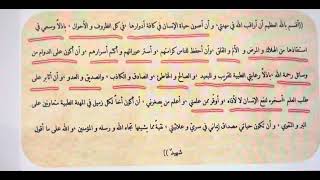 ((أقسم بالله العظيم أن أراقب الله في مهنتي، و أن أصون حياة الإنسان في كافة أدوارها في كل الظروف و الأحوال، باذلاً وسعي في
استنقاذها من الهلاك و المرض و الألم و القلق، وأن أحفظ للناس كرامتهم، و أستر عوراتهم و أكتم أسرارهم، و أن أكون على الدوام من
وسائل رحمة الله، باذلاً رعايتي الطبية للقريب و البعيد، الصالح و الخاطئ، و الصادق و الكاذب، والصديق و العدو، و أن أثابر على
طلب العلم، أسخره لنفع الإنسان لا لأذاه، وأوقر من علمني، و أعلم من يصغرني، و أن أكون أخاً لكل زميل في المهنة الطبية متعاونين على
البر و التقوى، و أن تكون حياتي مصداق إيماني في سري و علانيتي، نقية مما يشينها تجاه الله و رسوله و المؤمنين، و الله على ما أقول
شهيد))